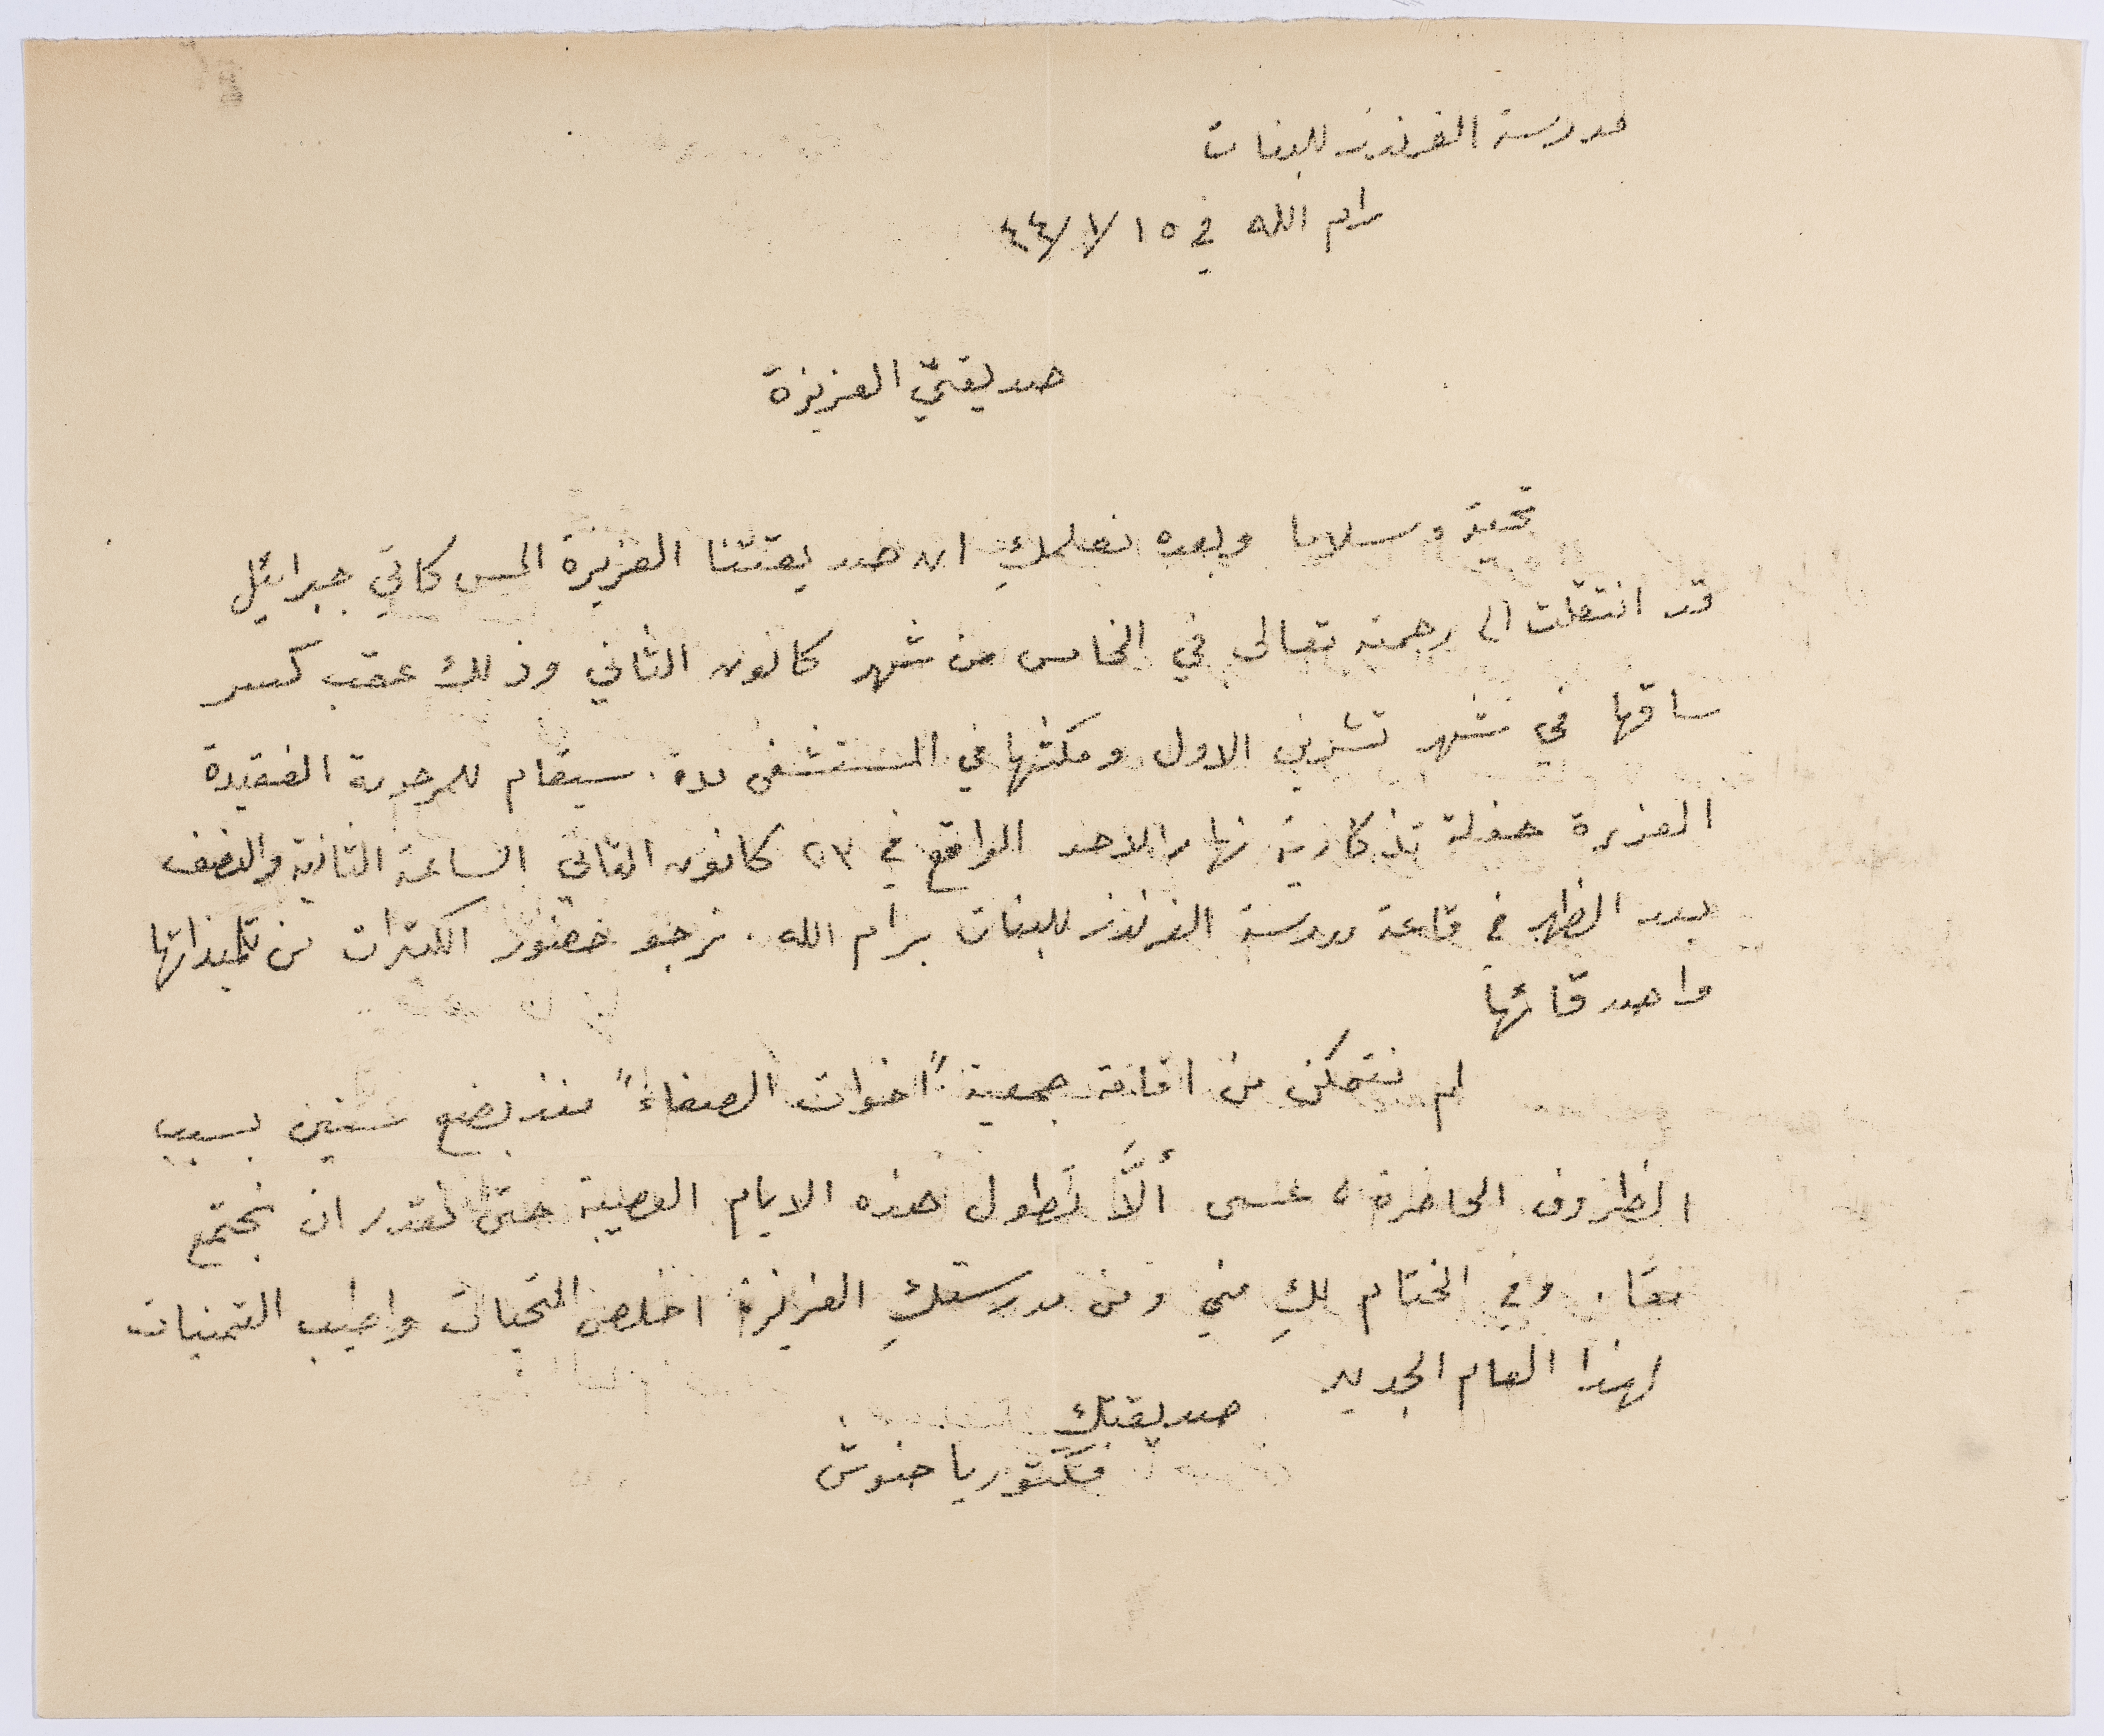 مدرسة الفرندز للبنات
رام الله في ١٥/١/٤٤
صديقتي العزيزة
تحية وسلاما وبعده نعلمكِ ان صديقتنا العزيزة المس كاتي جبرائيل
قد انتقلت الى رحمته تعالى في الخامس من شهر كانون الثاني وذلك عقب كسر
ساقها في شهر تشرين الاول ومكثها في المستشفى مدة. سيقام للمرحومة الفقيدة
العزيزة حفلة تذكارية نهار الاحد الواقع في ٢٣ كانون الثاني الساعة الثانية والنصف
بعد الظهر في قاعة مدرسة الفرندز للبنات برام الله. نرجو حضور الكثيرات من تلميذاتها
واصدقائها
لم نتمكن من اقامة جمعية "اخوات الصفاء" منذ بضع سنين بسبب
الظروف الحاضرة، عسى ألَّا تطول هذه الايام العصيبة حتى نقدر ان نجتمع
معًا. وفي الختام لكِ مني ومن مدرستكِ العزيزة اخلص التحيات واطيب التمنيات
لهذا العام الجديد
صديقتك
فكتوريا حنوش